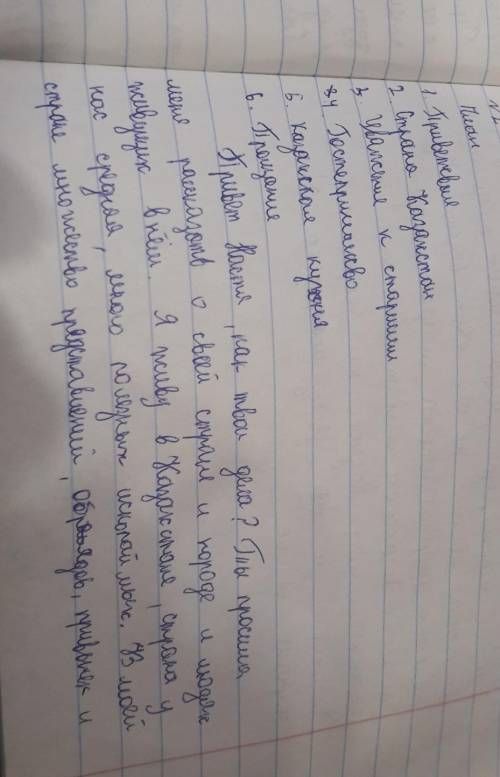 План
1. Приветствие
2. Страна Казахстан
3. Уважение к старшим
4. Гостеприимство
5. Казахская кухня
6. Прощание
Привет Настя, как твои дела? Ты просила
меня рассказать о своей стране и городе и людях
живущих в нём. Я живу в Казахстане, страна у
нас средняя, много полезных ископаймых. Из моей
стране множество представлений, обрядов, привычек и